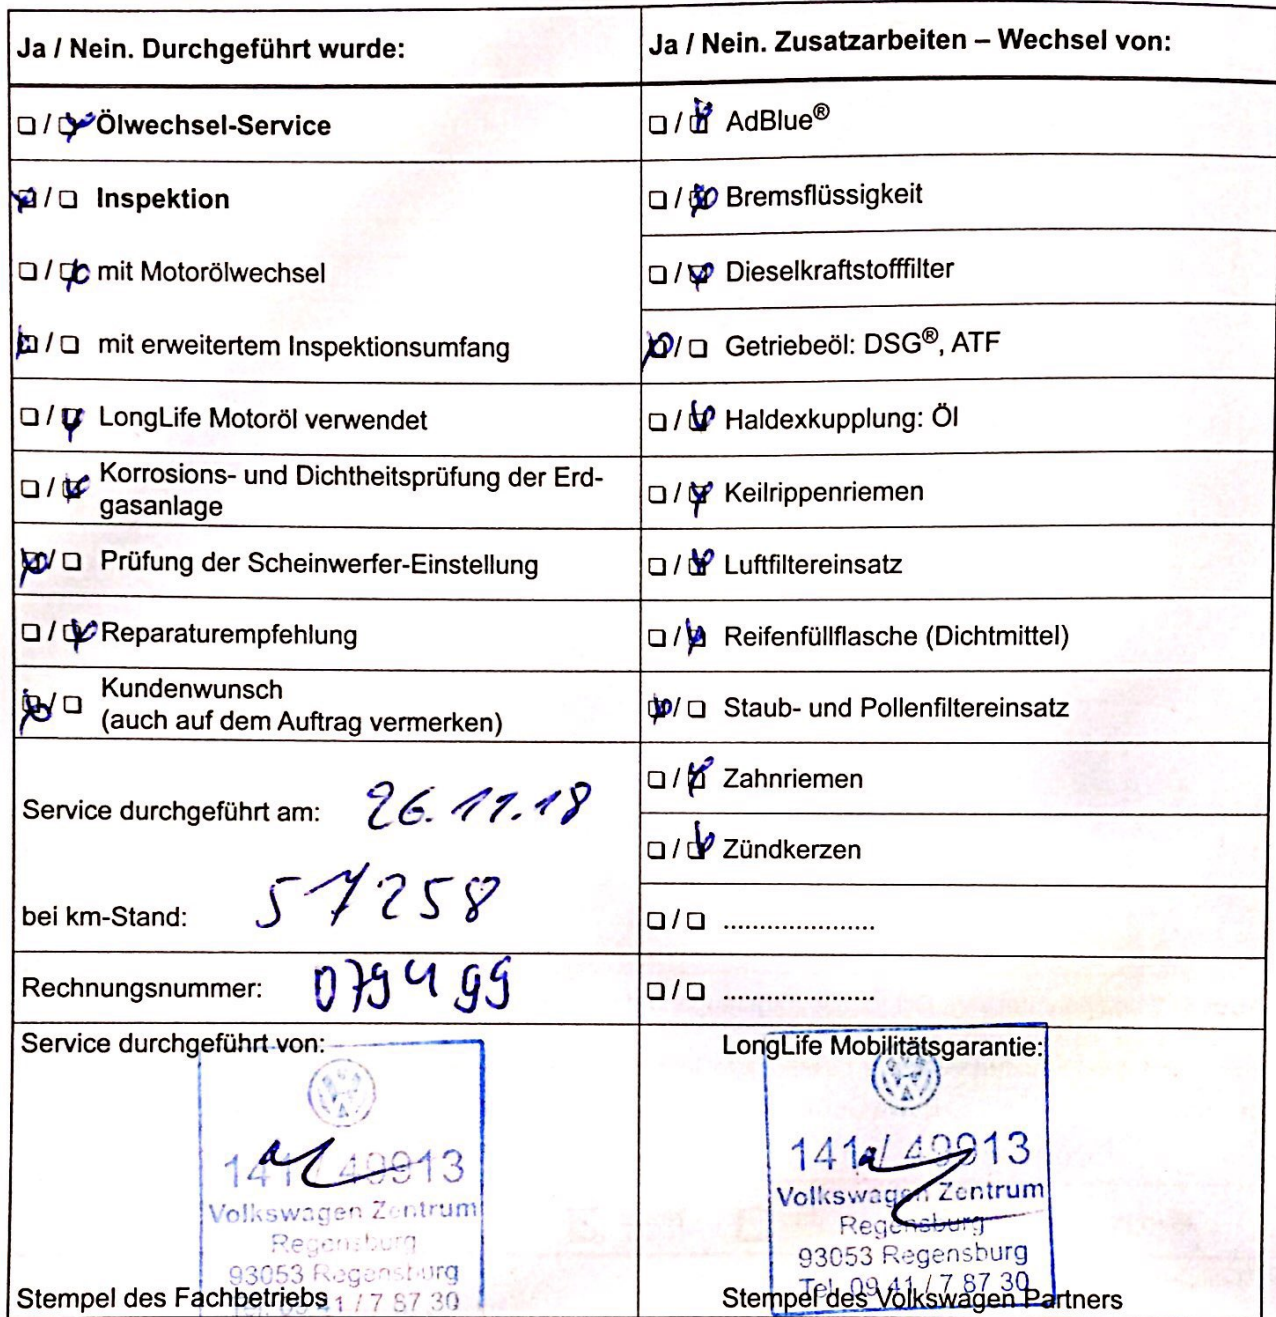 Ja / Nein. Durchgeführt wurde:
Ölwechsel-Service
Inspektion
mit Motorölwechsel
mit erweitertem Inspektionsumfang
LongLife Motoröl verwendet
Korrosions- und Dichtheitsprüfung der Erd-
gasanlage
Prüfung der Scheinwerfer-Einstellung
Reparaturempfehlung
Kundenwunsch
(auch auf dem Auftrag vermerken)
Service durchgeführt am: 26.11.18
bei km-Stand: 57258
Rechnungsnummer: 079499
Service durchgeführt von:
141 / 49913
Volkswagen Zentrum
Regensburg
93053 Regensburg
Tel. 09 41 / 7 87 30
Stempel des Fachbetriebs
Ja / Nein. Zusatzarbeiten – Wechsel von:
AdBlue®
Bremsflüssigkeit
Dieselkraftstofffilter
Getriebeöl: DSG®, ATF
Haldexkupplung: Öl
Keilrippenriemen
Luftfiltereinsatz
Reifenfüllflasche (Dichtmittel)
Staub- und Pollenfiltereinsatz
Zahnriemen
Zündkerzen
.....................
.....................
LongLife Mobilitätsgarantie:
141 / 49913
Volkswagen Zentrum
Regensburg
93053 Regensburg
Tel. 09 41 / 7 87 30
Stempel des Volkswagen Partners